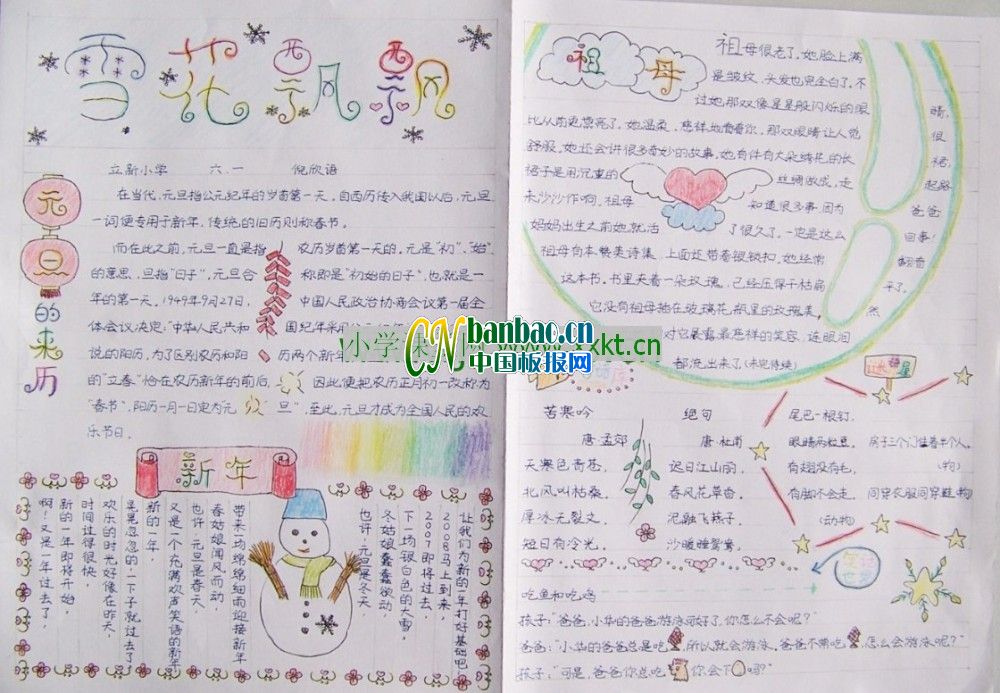 雪花飘飘
立新小学 六.一 倪欣语
元旦的来历
在当代,元旦指公元纪年的岁首第一天。自西历传入我国以后,元旦
一词便专用于新年,传统的旧历则称春节。
而在此之前,元旦一直是指农历岁首第一天的。元是"初"、"始"
的意思,旦指"日子",元旦合称即是"初始的日子",也就是一
年的第一天。1949年9月27日,中国人民政治协商会议第一届全
体会议决定:"中华人民共和国纪年采用
说的阳历,为了区别农历和阳历两个新年
的"立春"恰在农历新年的前后,因此便把农历正月初一改称为
"春节",阳历一月一日定为元旦",至此,元旦才成为全国人民的欢
乐节日。
新年
让我们为新的一年打好基础吧
2008马上到来,
2007即将过去,
下一场银白色的大雪,
冬姑娘蠢蠢欲动
也许,元旦是冬天
带来一场绵绵细雨迎接新年
春姑娘闻风而动
也许,元旦是春天,
又是一个充满欢声笑语的新年
新的一年,
是晃忽忽的一下子就过去了,
欢乐的时光好像在昨天,
时间过得很快,
新的一年即将开始,
啊!又是一年过去了,
祖母
祖母很老了,她脸上满
是皱纹,头发也完全白了,不
过她那双像星星般闪烁的眼睛,
比从前更漂亮了。她温柔、慈祥地看着你,那双眼睛让人觉很
舒服,她还会讲很多奇妙的故事,她有件有大朵绣花的长裙,
裙子是用沉重的丝绸做成,走起路
来沙沙作响。祖母知道很多事,因为爸爸
妈妈出生之前她就活了很久了,一定是这么回事!
祖母有本赞美诗集,上面还带着银锁扣,她经常翻看
这本书,书里夹着一朵玫瑰,已经压得干枯扁平了,
它没有祖母插在玻璃花瓶里的玫瑰美,然
对它展露最慈祥的笑容,连眼泪
都流出来了。(未完待续)
CN banbao.cn
中国板报网
小学课
xkt.cn
苦寒吟
唐·孟郊
天寒色青苍,
北风叫枯桑。
厚冰无裂文,
短日有冷光。
绝句
唐·杜甫
迟日江山丽,
春风花草香。
泥融飞燕子,
沙暖睡鸳鸯。
谜语星
尾巴一根钉,
眼睛两粒豆,
有翅没有毛,
有脚不会走。
(动物)
房子三个门住着半个人。
(物)
同穿衣服同穿鞋(物)
笑话世界
吃鱼和吃鸡
孩子:"爸爸,小华的爸爸游泳可好了,你怎么不会呢?"
爸爸:"小华的爸爸总是吃,所以就会游泳,爸爸不常吃,怎么会游泳呢?"
孩子:"可是,爸爸你总吃,你会下吗?"